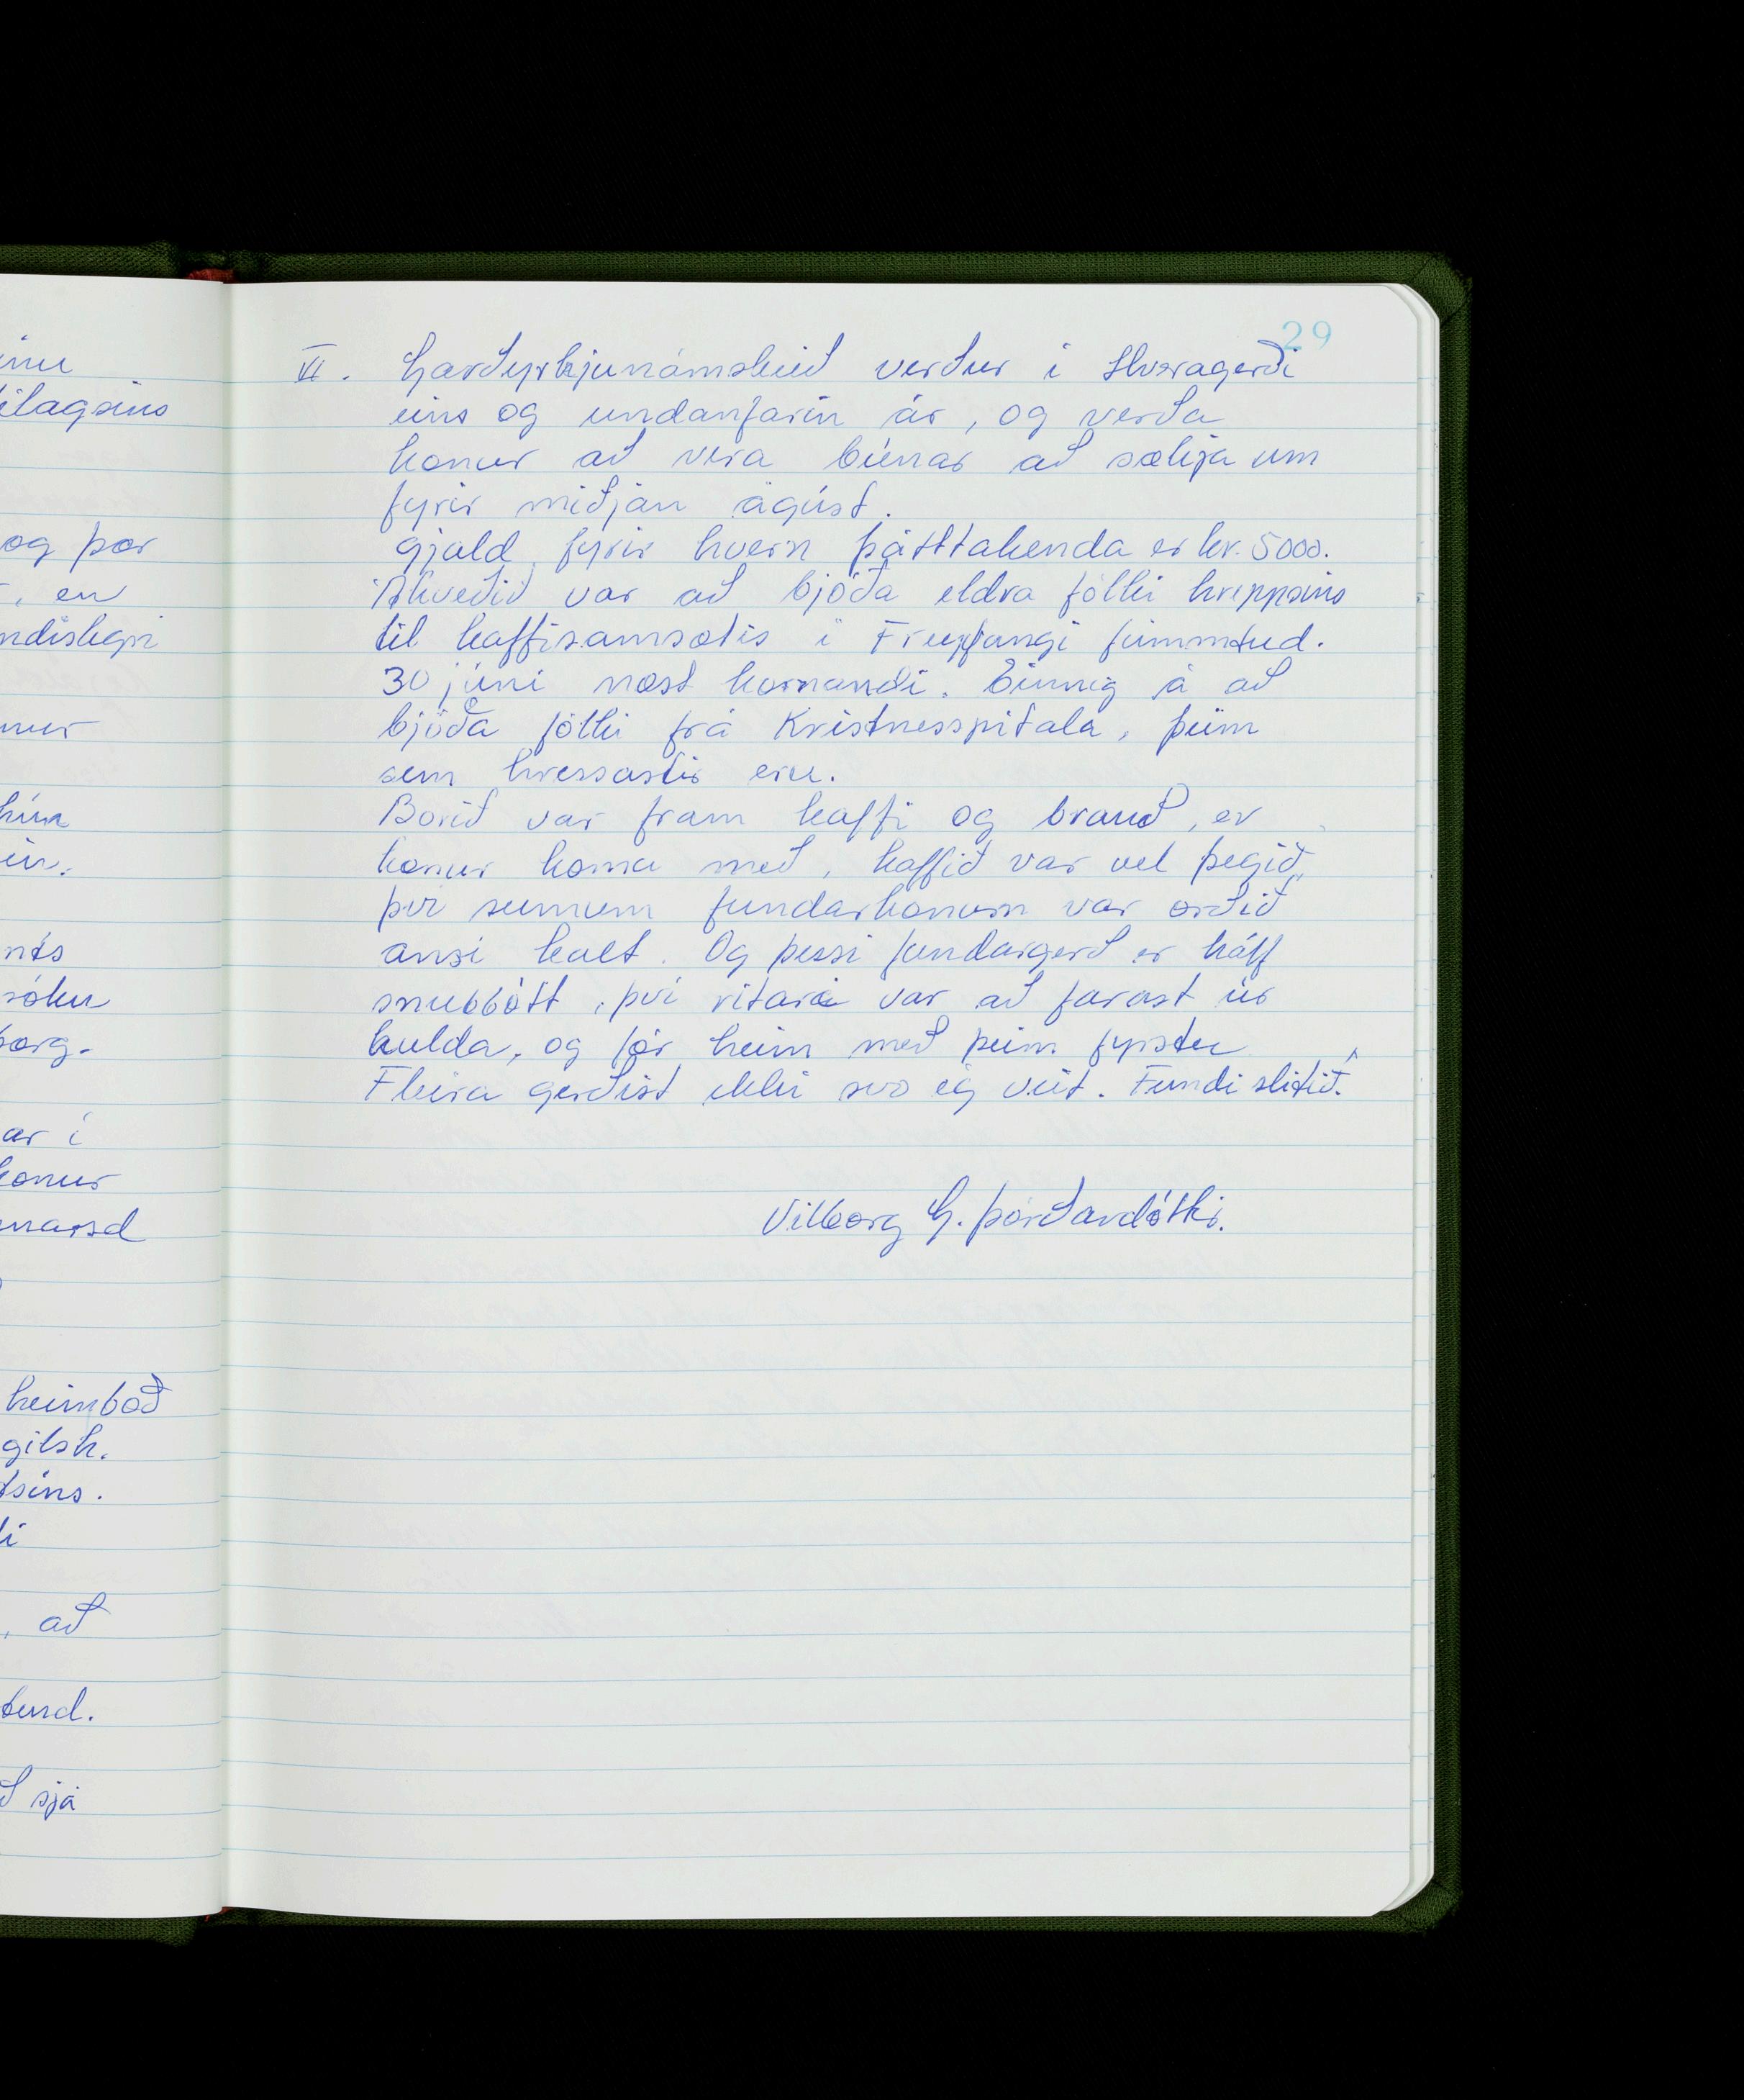 inu
ilagsins
og þær
, en
ndislegri
nur
hún
in.
nés
sóku
borg.
ar í
konur
narsd
heimboð
gilsk.
tsins.
di
, að
tud.
ð sjá
29
VI. Garðyrkjunámskeið verður í Hveragerði
eins og undanfarin ár, og verða
konur að vera búnar að sækja um
fyrir miðjan ágúst.
Gjald fyrir hvern þátttakenda er kr. 5000.
Ákveðið var að bjóða eldra fólki hreppsins
til kaffisamsætis í Freyfangi fimmtud.
30 júní næst komandi. Einnig á að
bjóða fólki frá Kristnesspítala, þeim
sem hressastir eru.
Borið var fram kaffi og brauð, er
konur koma með, kaffið var vel þegið,
því sumum fundarkonum var orðið
ansi kalt. Og þessi fundargerð er hálf
snubbótt, því ritari var að farast úr
kulda, og fór heim með þeim fyrstu
Fleira gerðist ekki svo ég veit. Fundi slitið.
Vilborg G. Þórðardóttir.